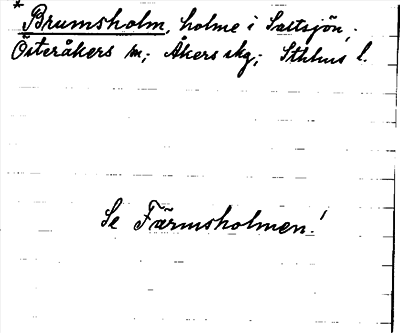 * Brumsholm, holme i Saltsjön,
Österåkers m; Åkers skg; Sthlms l.
Se Färmsholmen!